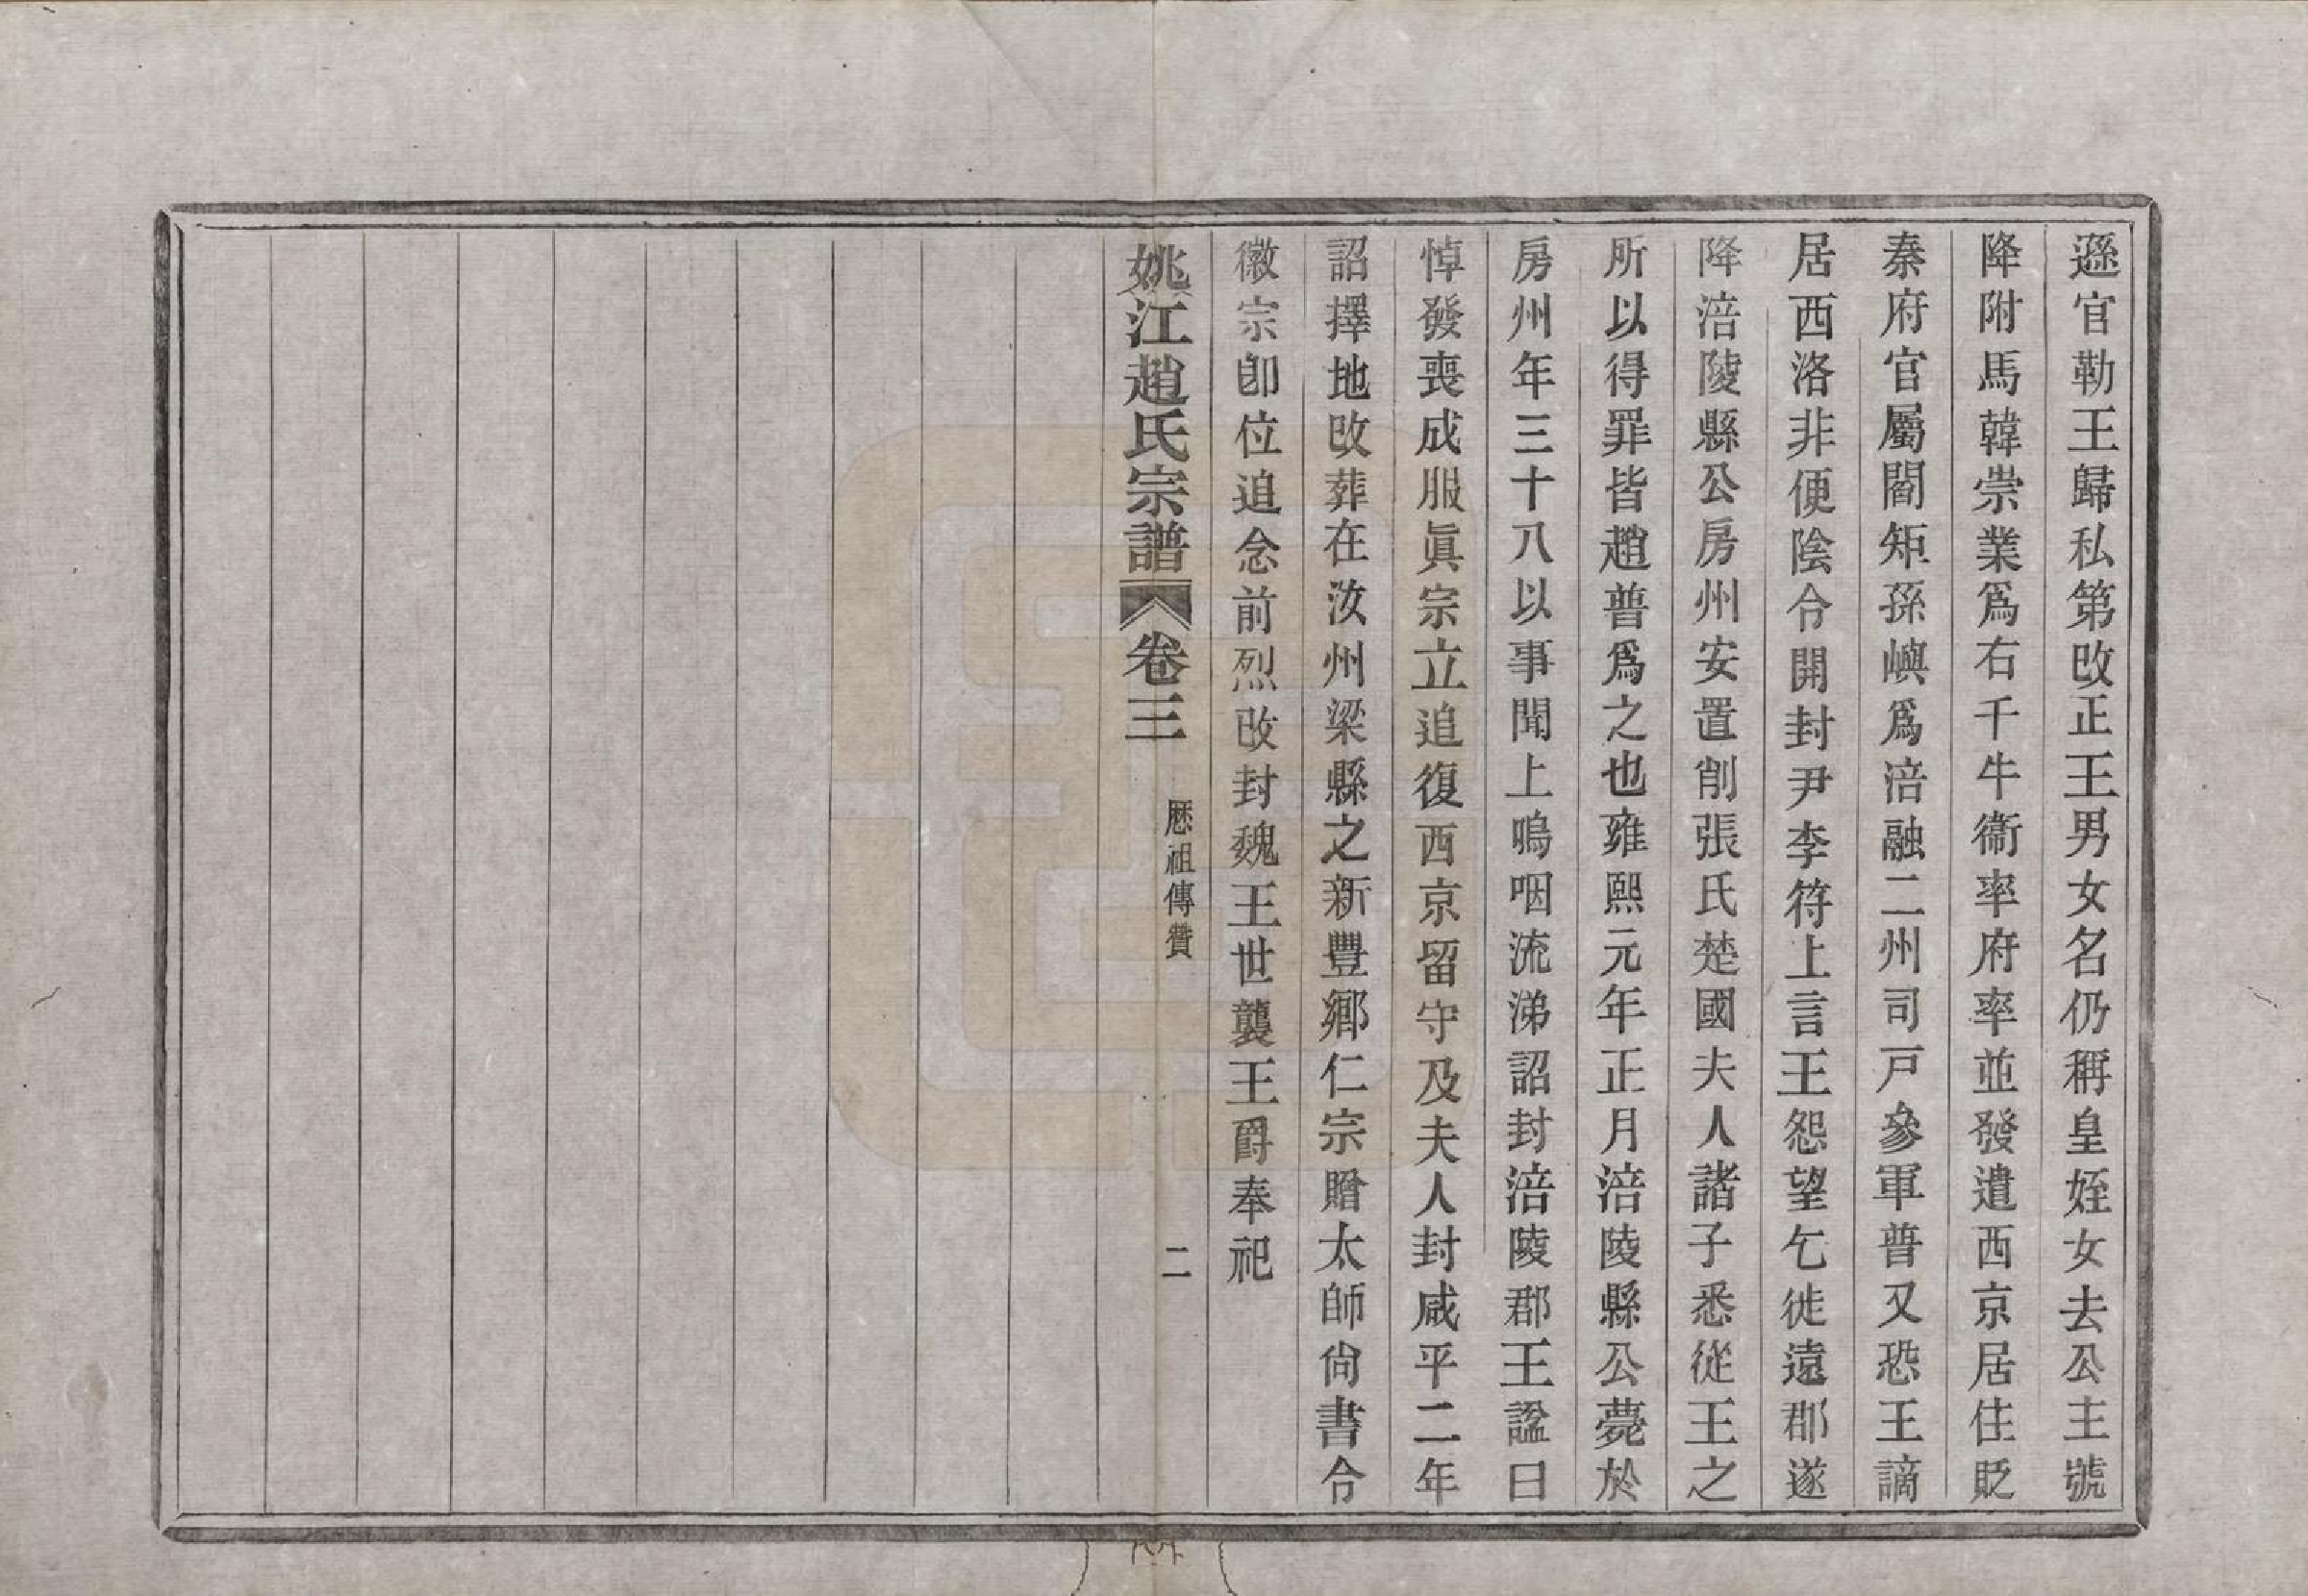 遜官勒王歸私第改正王男女名仍稱皇姪女去公主號
降附馬韓崇業爲右千牛衞率府率並發遣西京居住貶
秦府官屬閻矩孫嶼爲涪融二州司戸參軍普又恐王謫
居西洛非便陰令開封尹李符上言王怨望乞徙遠郡遂
降涪陵縣公房州安置削張氏楚國夫人諸子悉從王之
所以得罪皆趙普爲之也雍熙元年正月涪陵縣公薨於
房州年三十八以事聞上嗚咽流涕詔封涪陵郡王諡曰
悼發喪成服眞宗立追復西京留守及夫人封咸平二年
詔擇地改葬在汝州梁縣之新豐鄉仁宗贈太師尙書令
徽宗卽位追念前烈改封魏王世襲王爵奉祀
姚江趙氏宗譜 卷三 歷祖傳贊 二